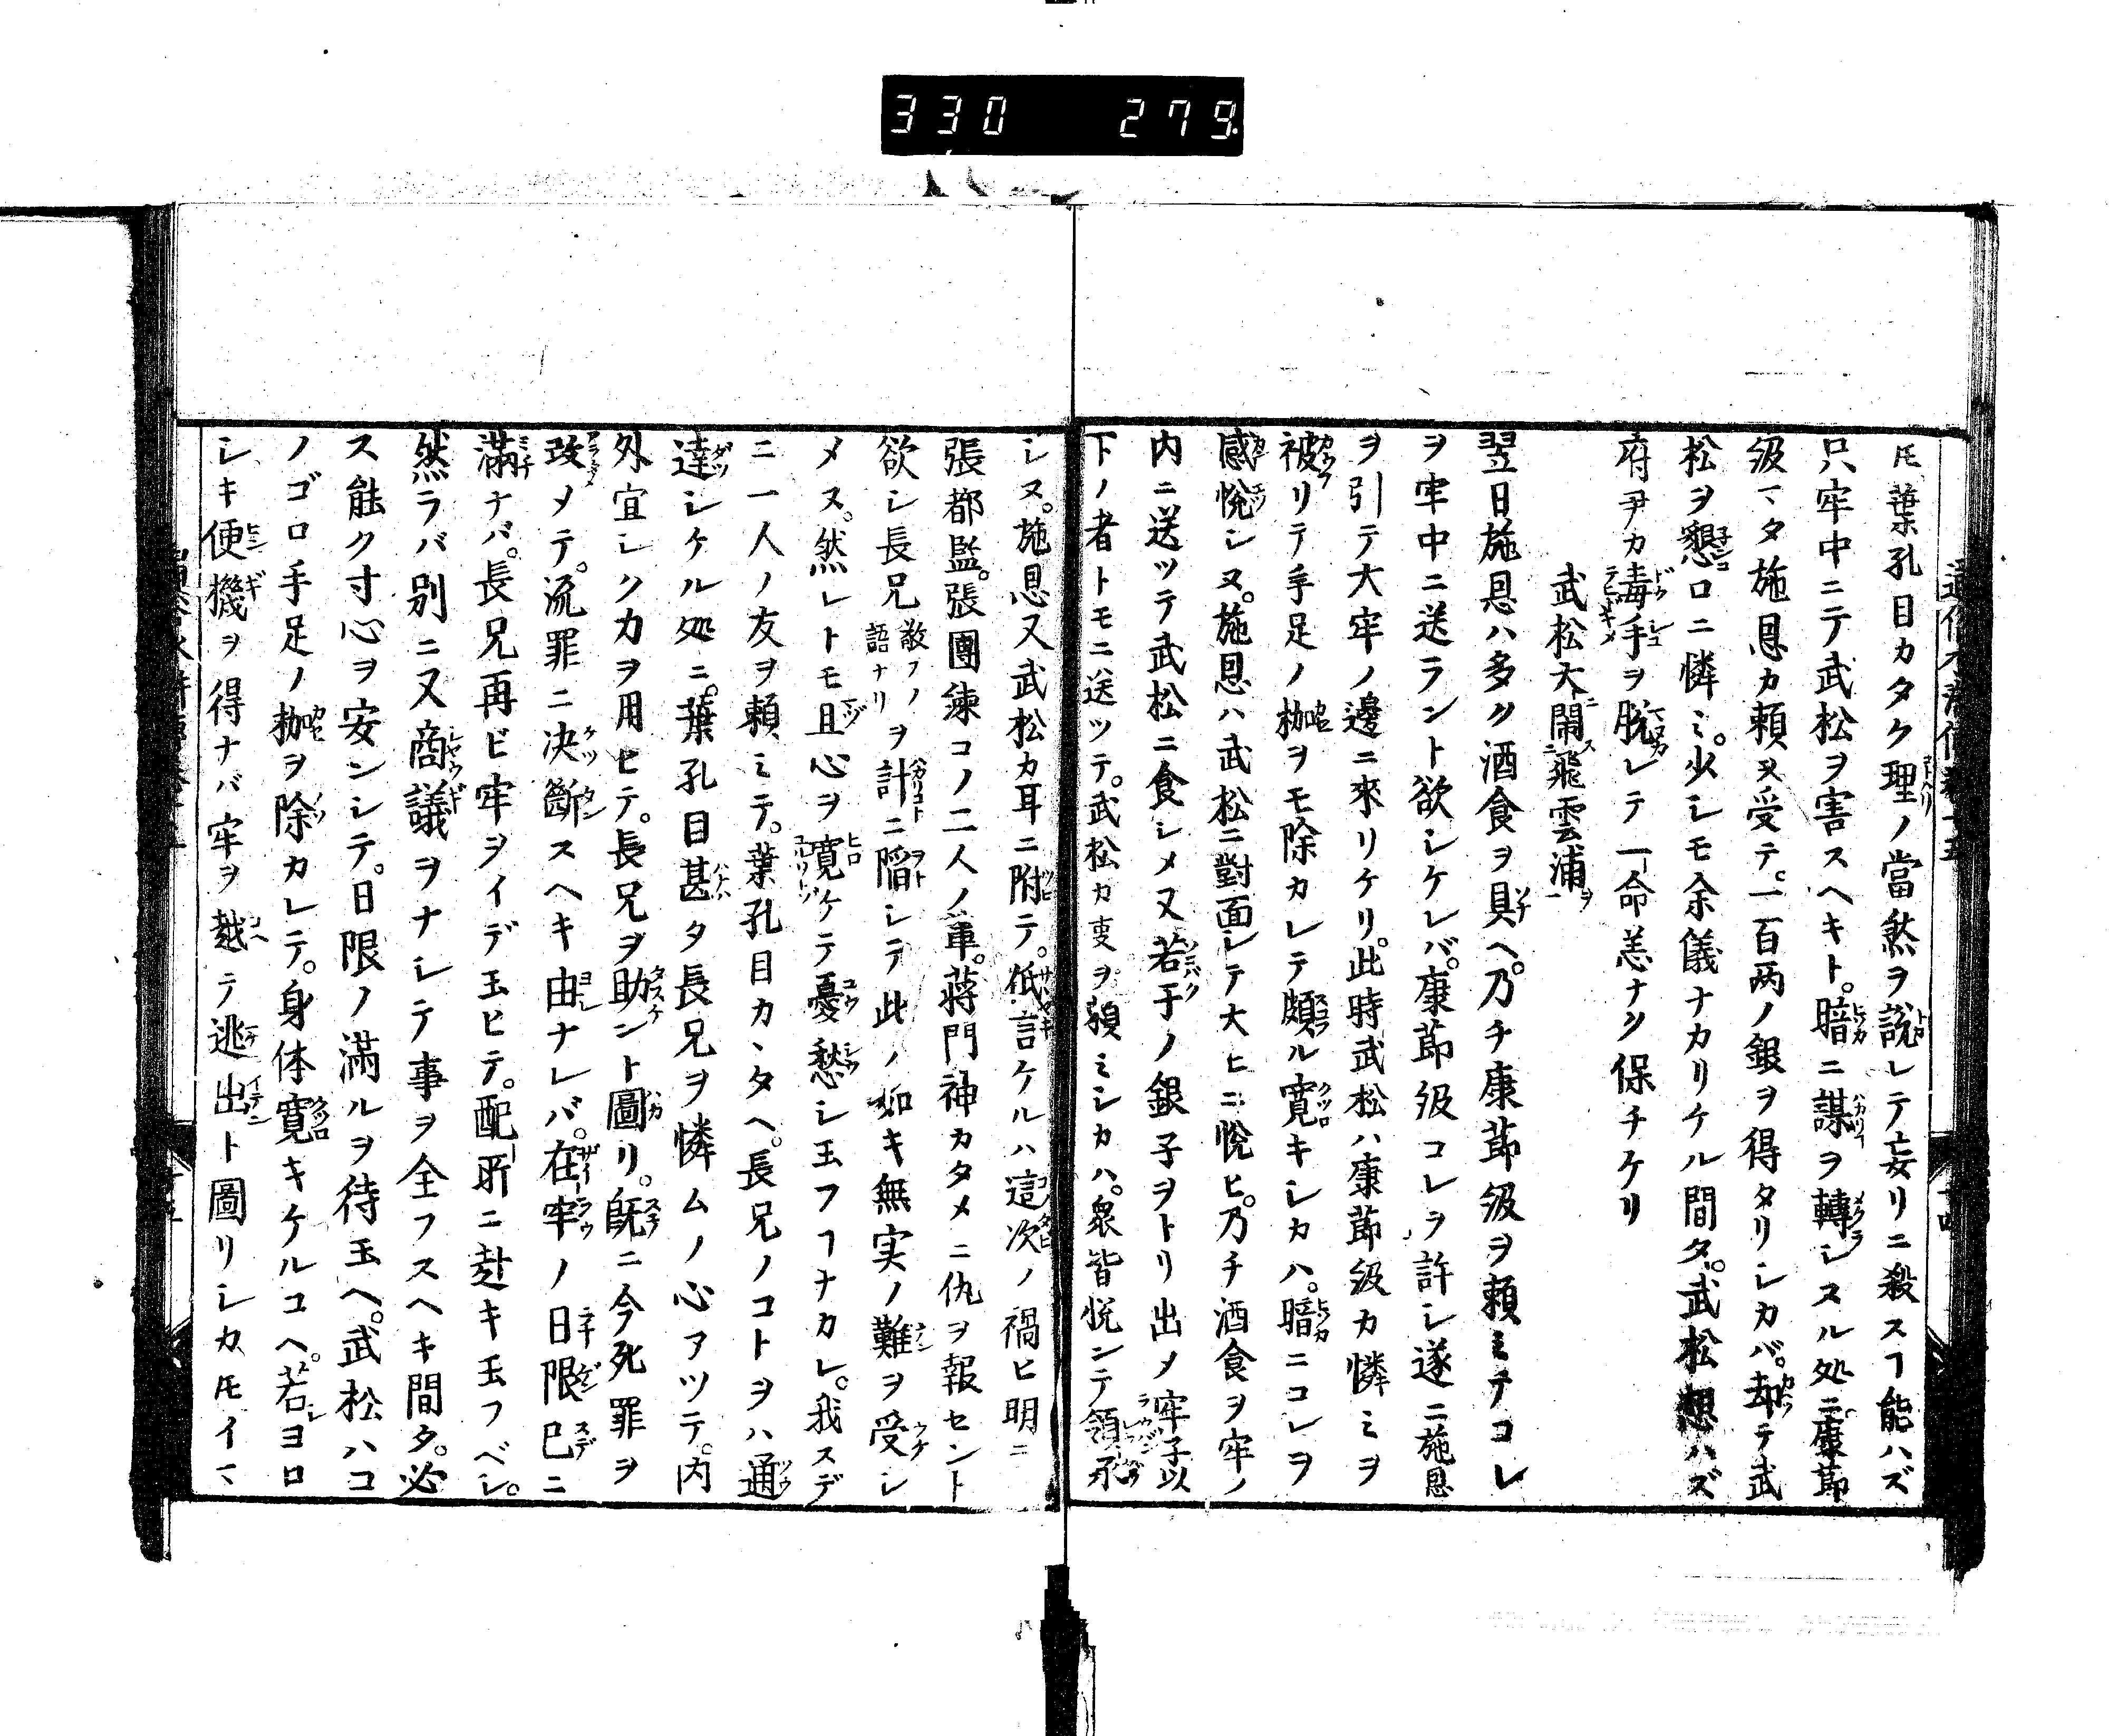 330 279
𪜈葉孔目カタク理ノ當然ヲ説レテ妄リニ殺スヿ能ハズ
只牢中ニテ武松ヲ害スヘキト。暗ニ謀ヲ轉シスル処ニ。康節
級マタ施恩カ頼ヲ受テ。一百两ノ銀ヲ得タリシカバ。却テ武
松ヲ懇ロニ憐ミ。少シモ余儀ナカリケル間タ。武松想ハズ
府尹カ毒手ヲ脱レテ一命恙ナク保チケリ
武松大閙飛雲浦
翌日施恩ハ多ク酒食ヲ具ヘ。乃チ康節級ヲ頼ミテコレ
ヲ牢中ニ送ラント欲シケレバ。康節級コレヲ許シ遂ニ施恩
ヲ引テ大牢ノ邊ニ來リケリ。此時武松ハ康節級カ憐ミヲ
被リテ手足ノ枷ヲモ除カレテ頗ル寛キシカハ。暗ニコレヲ
感悦シヌ。施恩ハ武松ニ對面シテ大ヒニ悦ヒ。乃チ酒食ヲ牢ノ
内ニ送ツテ武松ニ食シメ又若干ノ銀子ヲトリ出メ牢子以
下ノ者トモニ送ツテ。武松カ叓ヲ頼ミシカハ。衆皆悦ンテ領承
シヌ。施恩又武松カ耳ニ附テ。低言ケルハ這次ノ禍ヒ明ニ
張都監。張團練コノ二人ノ軍。蒋門神カタメニ仇ヲ報セント
欲シ長兄敬フノ語ナリヲ計ニ陥シテ此ノ如キ無実ノ難ヲ受シ
メヌ。然レトモ且心ヲ寛ケテ憂愁シ玉フヿナカレ。我スデ
ニ一人ノ友ヲ頼ミテ。葉孔目カヽタヘ。長兄ノコトヲハ通
達シケル処ニ。葉孔目甚タ長兄ヲ憐ムノ心アツテ。内
外宜シク力ヲ用ヒテ。長兄ヲ助ント圖リ。既ニ今死罪ヲ
改メテ。流罪ニ决斷スヘキ由ナレバ。在牢ノ日限已ニ
滿ナバ。長兄再ビ牢ヲイデ玉ヒテ。配所ニ赴キ玉フベシ。
然ラバ別ニ又商議ヲナシテ事ヲ全フスヘキ間タ。必
ス能ク寸心ヲ安ンシテ。日限ノ滿ルヲ待玉ヘ。武松ハコ
ノゴロ手足ノ枷ヲ除カレテ。身体寛キケルコヘ。若ヨロ
シキ便機ヲ得ナバ牢ヲ越テ逃出ト圖リシカ𪜈イマ